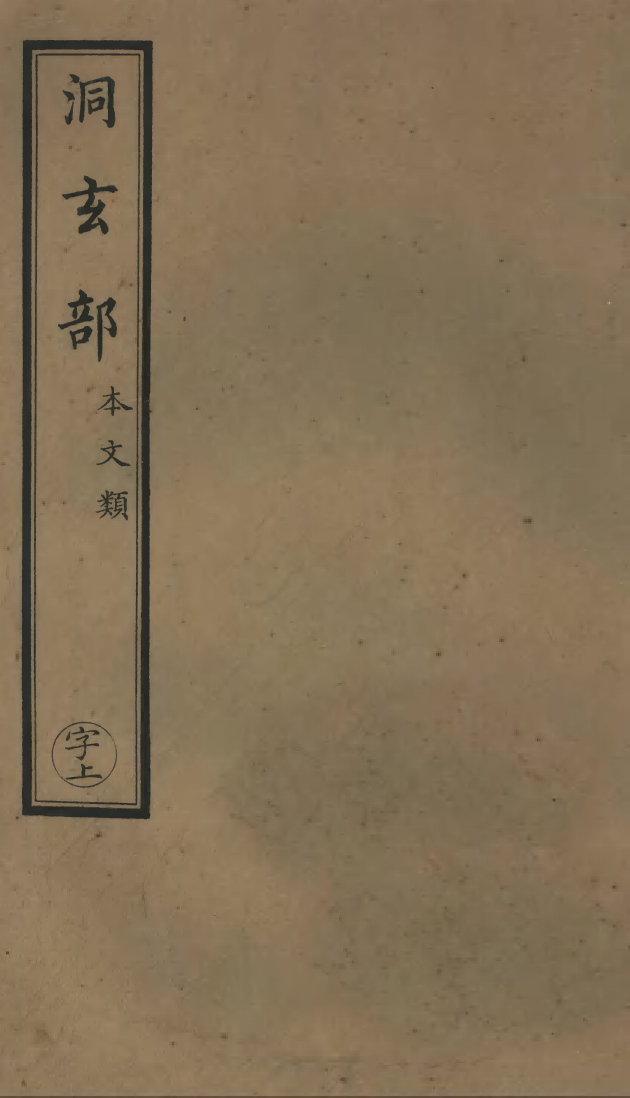 洞玄部
本文類
字上